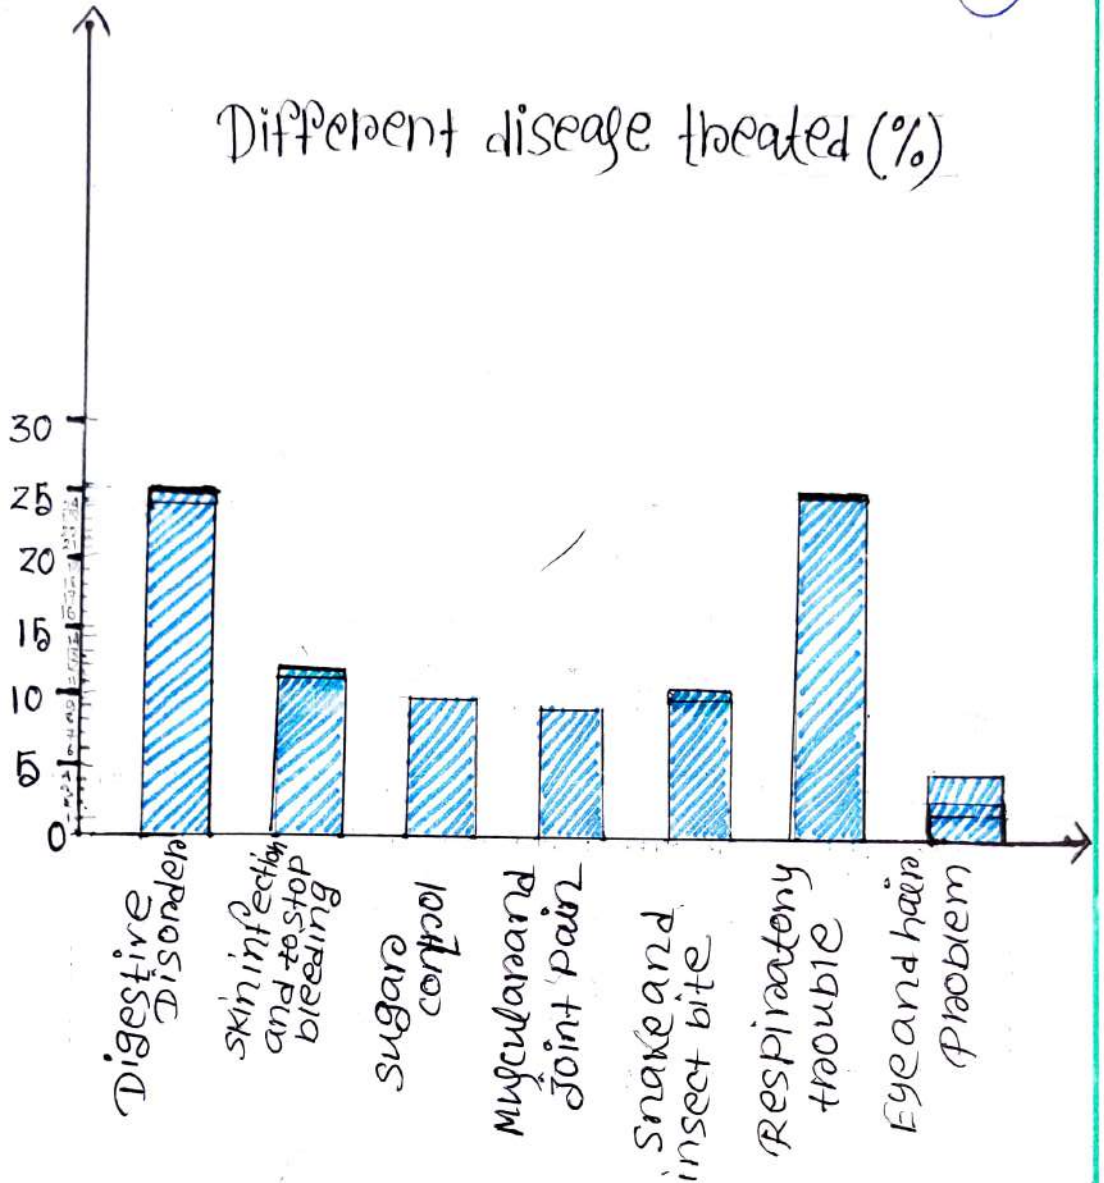 Different disease treated (%)
30
25
20
15
10
5
0
Digestive
Disorder
skin infection
and to stop
bleeding
sugar
control
Muscular and
Joint Pain
snake and
insect bite
Respiratory
trouble
Eye and hair
Problem